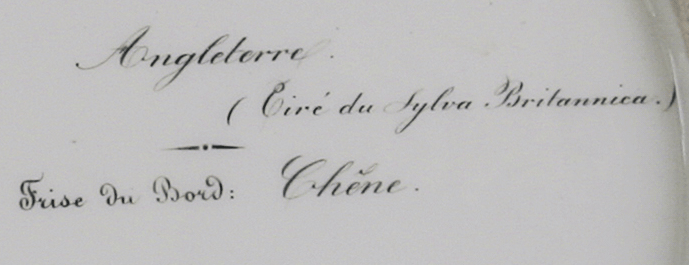 Angleterre.
(Tiré du Sylva Britannica.)
Frise du Bord: Chêne.